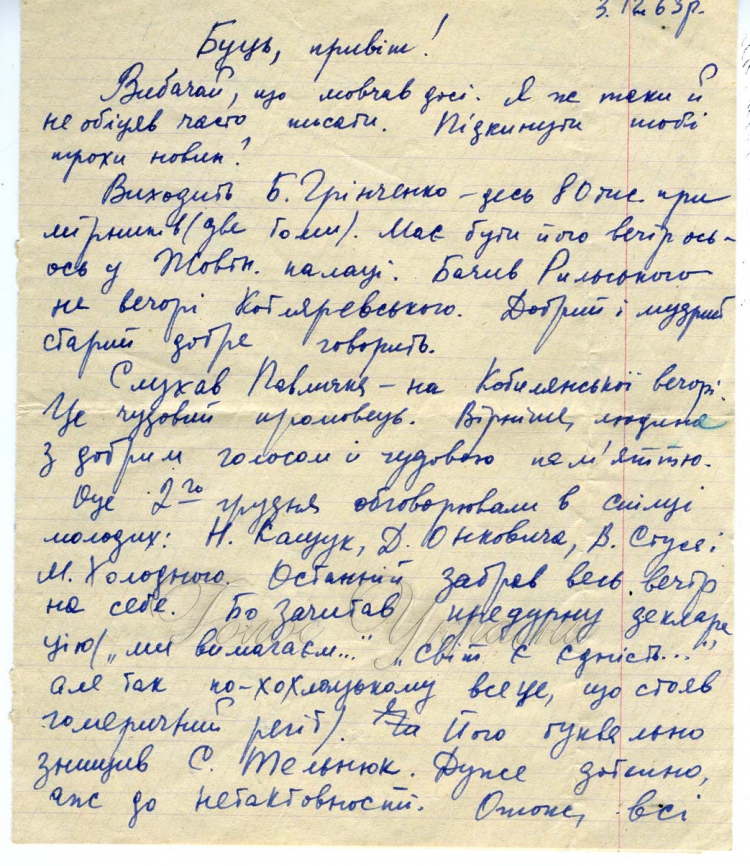 3.12 63р.
Буць, привіт!
Вибачай, що мовчав досі. Я ж таки й
не обіцяв часто писати. Підкинути тобі
трохи новин?
Виходить Б. Грінченко – десь 80 тис. при
мірників (две томи). Має бути його вечір ось-
ось у Жовтн. палаці. Бачив Рильського
на вечорі Котляревського. Добрий і мудрий
старий добре говорить.
Слухав Павличка – на Кобилянської вечорі.
Це чудовий промовець. Вірніше, людина
з добрим голосом й чудовою пам'яттю.
Оце 2го грудня обговорювали в спілці
молодих: Н. Кащук, Д. Онковича, В. Стуса і
М. Холодного. Останній забрав весь вечір
на себе. Бо зачитав придурну деклара
цію („ми вимагаєм..." „світ є єдність..."
але так по-хохлацькому все це, що стояв
гомеричний регіт). Його буквально
знищив С. Тельнюк. Дуже дотепно,
аж до нетактовності. Отож, всі
Голос України